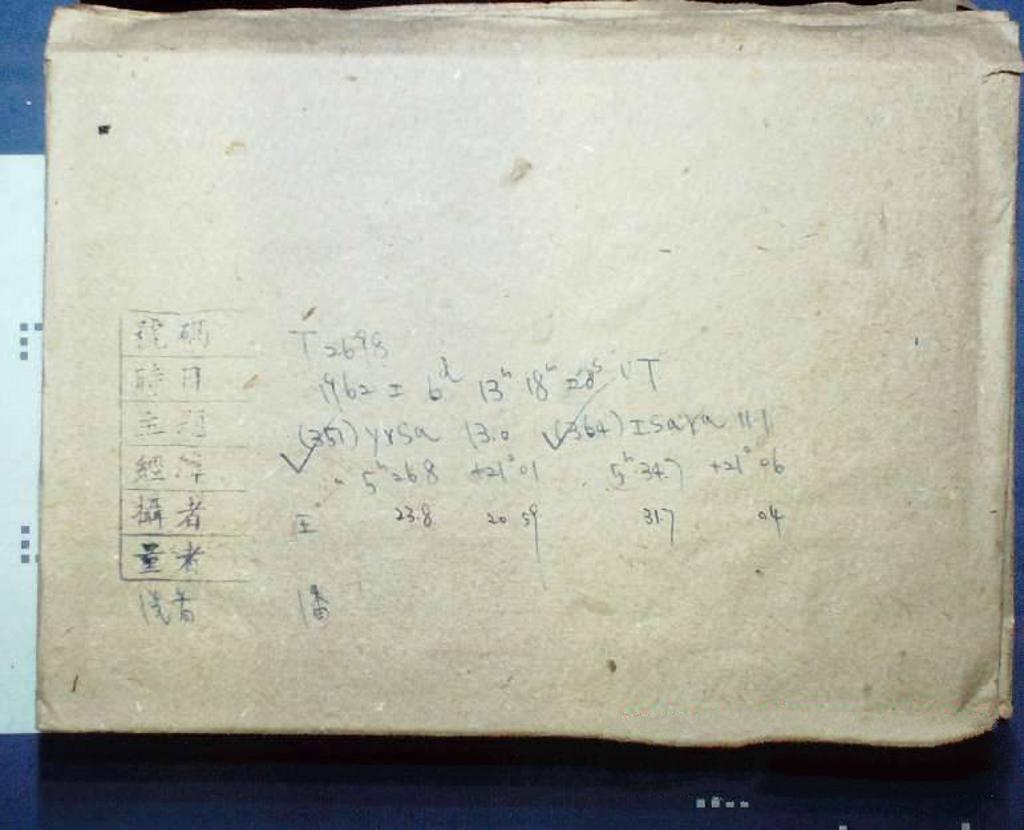 號碼 T 2698
時日 1962 I 6d 13h 18m 28s UT
主題 (351) Yrsa 13.0 (364) Isara 11.1
經緯 5h 26.8 +21° 01 5h 34.7 +21° 06
攝者 王 23.8 20 59 31.7 04
量者
潘